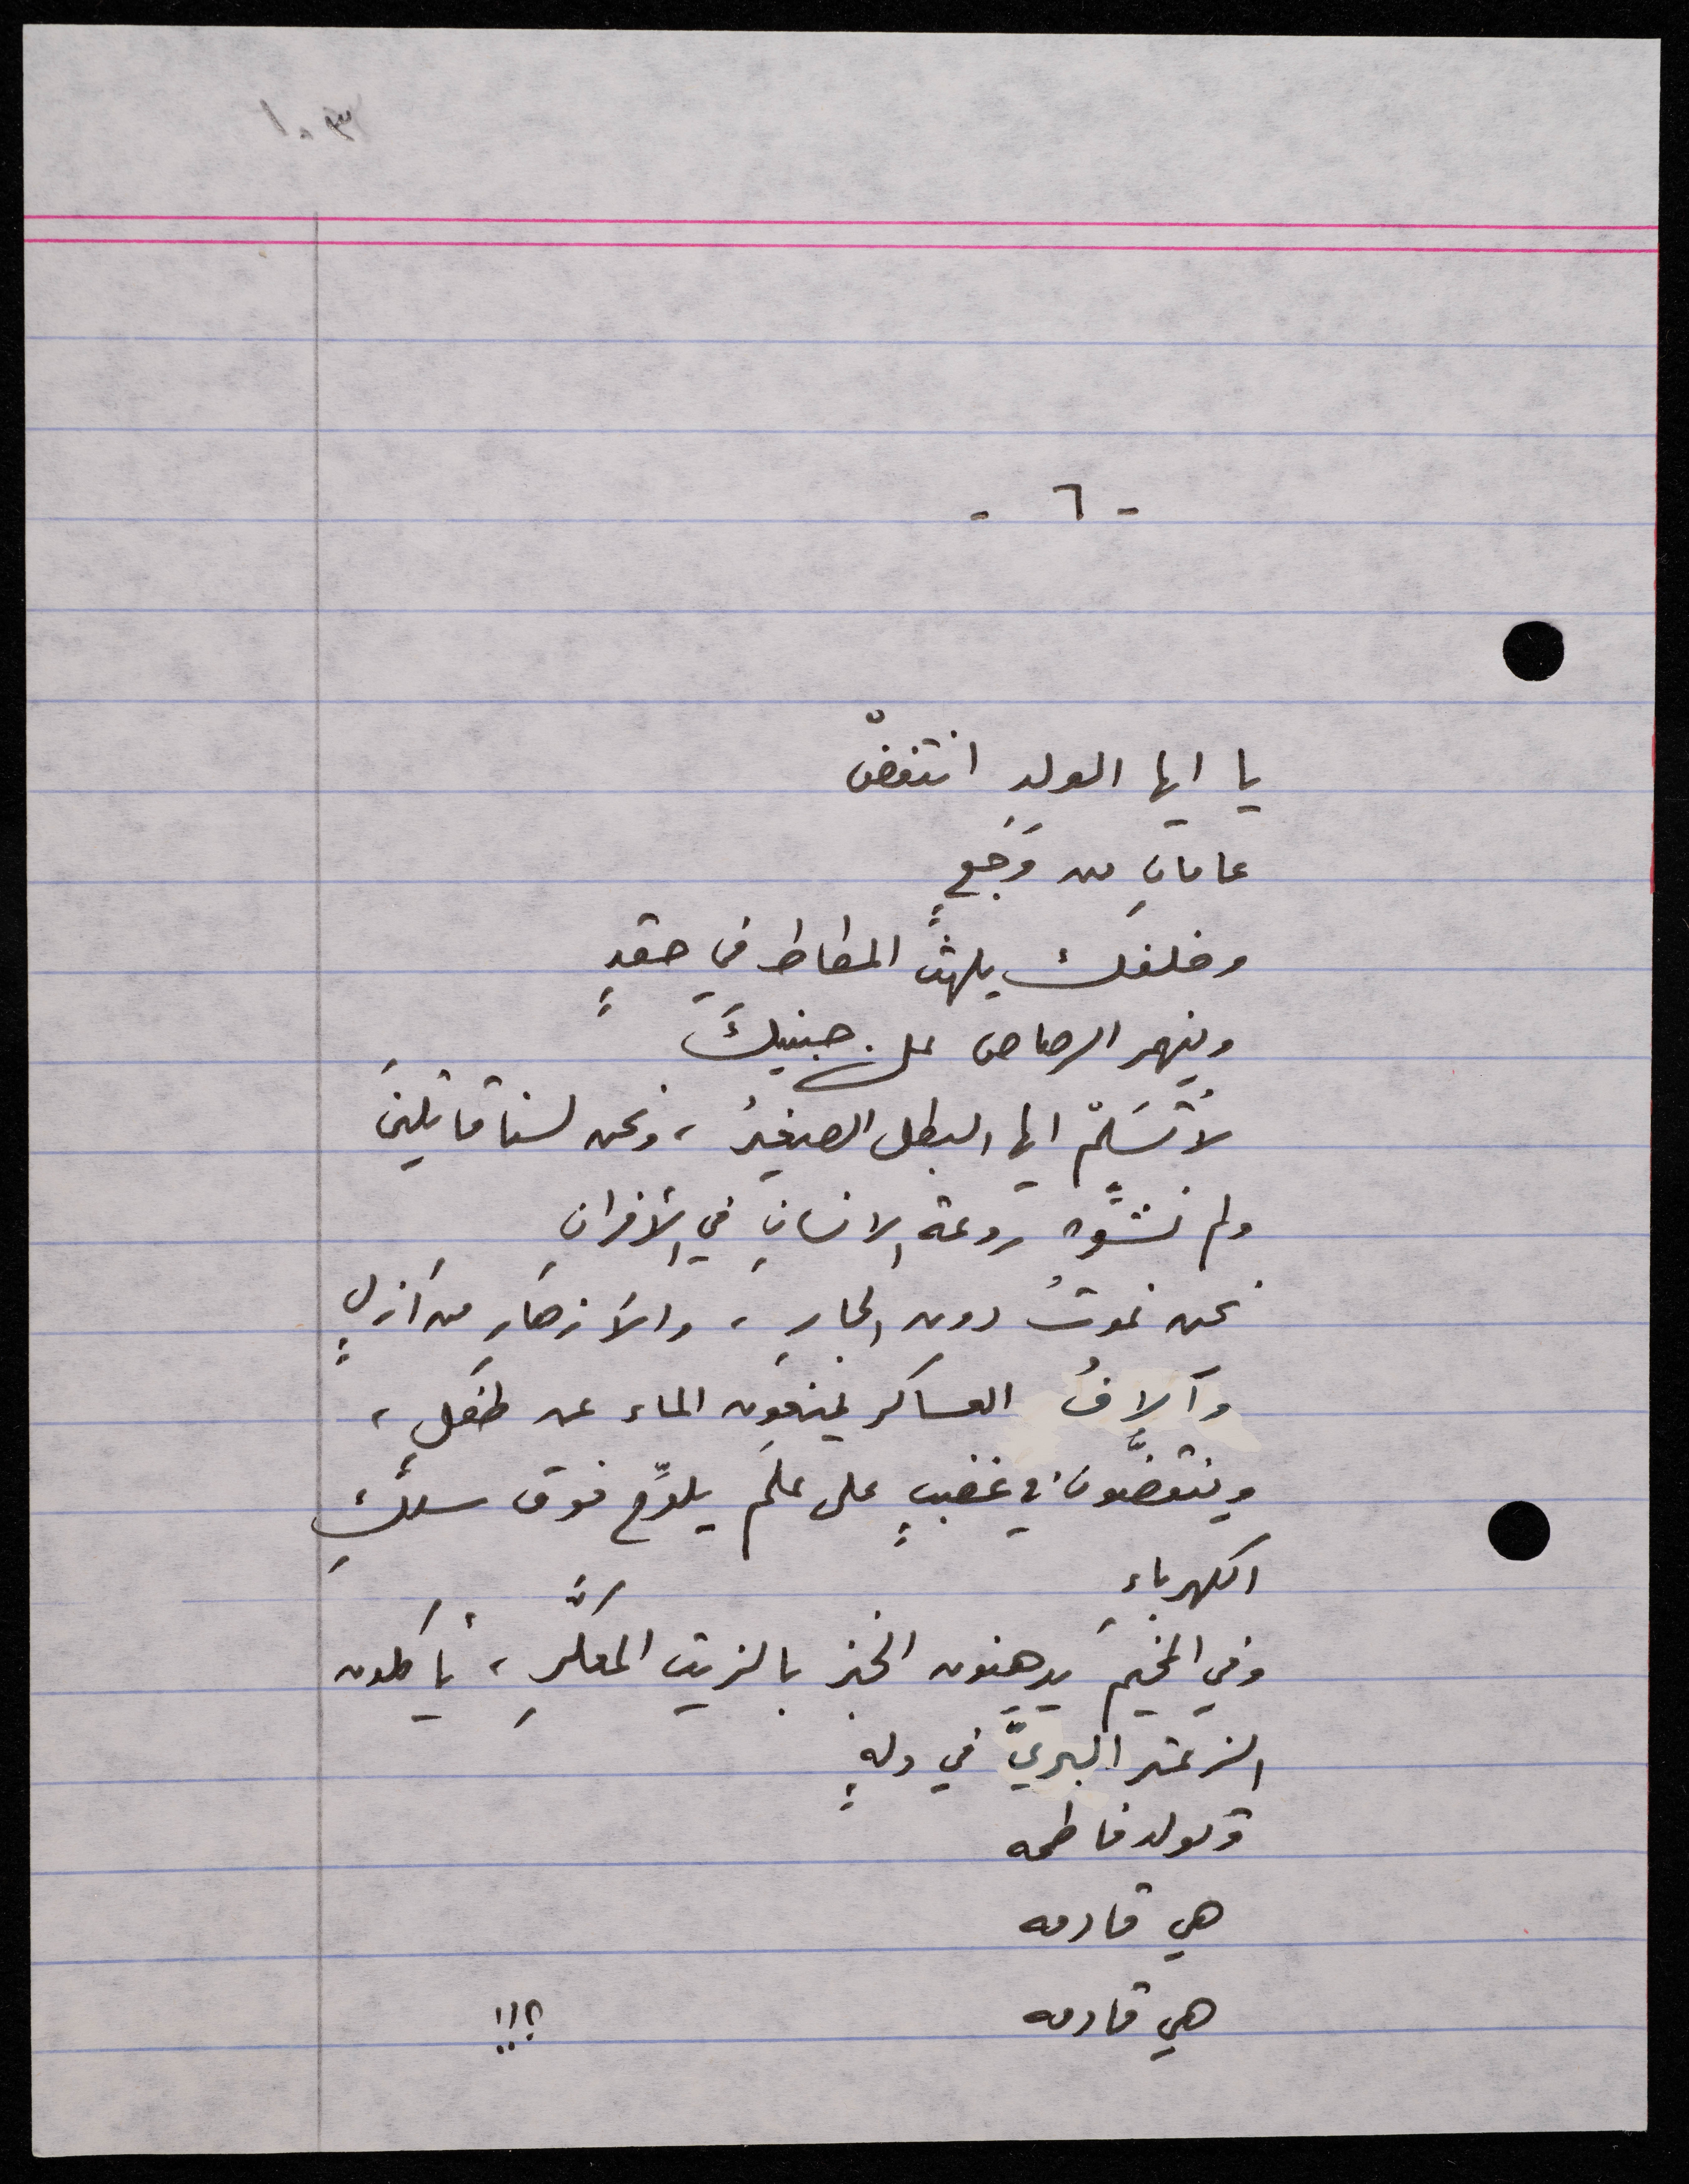 ١٠٣
- ٦ -
يا ايها الولد انتفضْ
عامانِ من وَجَعٍ
وخلفك يلهثُ المطاط في حقدٍ
وينهمر الرصاص على جبنيكَ
لا تُسَلِّمْ ايها البطل الصغيرُ ، ونحن لسنا قاتلينَ
ولم نشوِّه روعة الانسانِ في الأفرانِ
نحن نموتُ دون الجارِ ، والأزهارِ من أزلٍ
وآلافُ العساكر يمنعون الماء عن طفلٍ ،
وينقضّونَ في غضبٍ على علَمٍ يلوِّح فوق سلكِ
الكهرباءِ
وفي المخيَّم يدهنون الخبز بالزيت المعكَّرِ ، يأكلون
الزعتر البريَّ في ولهٍ
وتولد فاطمه
هي قادمه
هي قادمه ؟!!